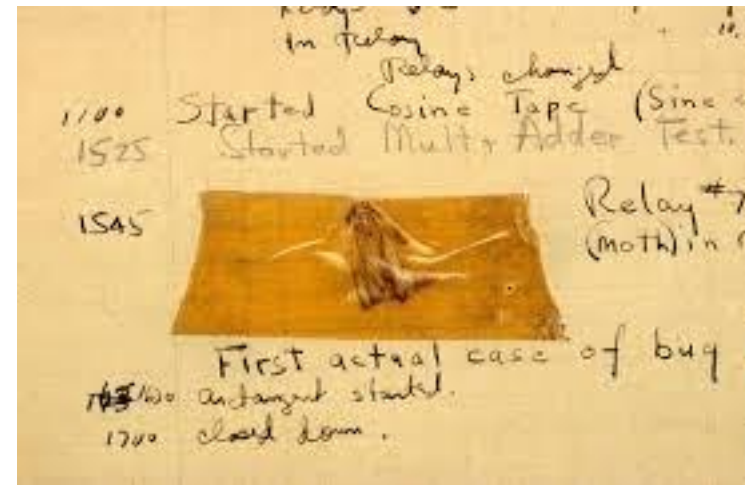 in Relay
Relays changed
1100 Started Cosine Tape (Sine
1525 Started Mult + Adder Test.
1545 Relay #7
(moth) in
First actual case of bug
1630 antangent started.
1700 closed down.